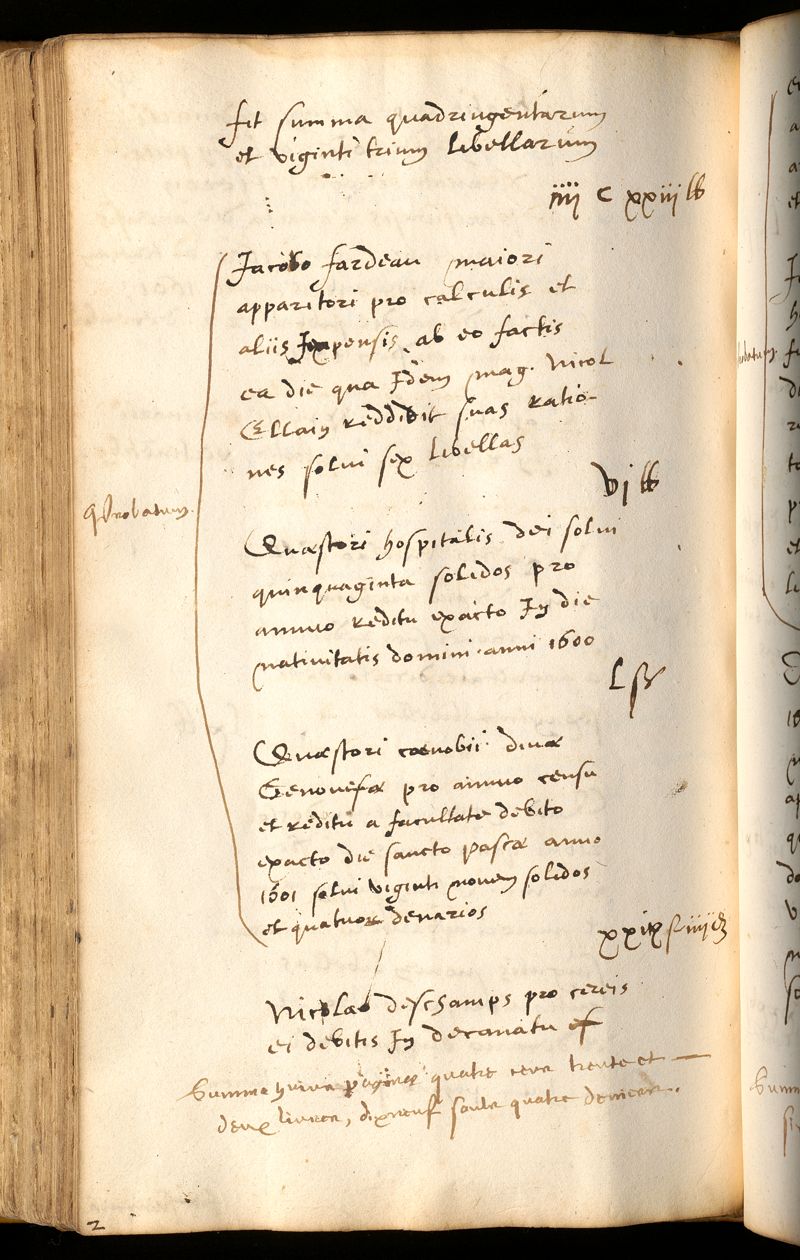 fit summa quadringentarum
et viginti trium libellarum
iiii C xxiii lb
Jacobo fardeau maiori
apparitori pro calculis et
aliis Jxpensis ab eo factis
ea die qua Idem mag. Nicol
Ellain reddidit suas ratio-
nes solui sex libellas
vi lb
approbatum
Quæstori hospitalis dei solui
quinquaginta solidos pro
annuo reditu exacto In die
nativitatis domini anni 1600
L s
Quæstori cœnobii divæ
Genovefæ pro annuo censu
et reditu a facultate debito
exacto die sancto pascæ anno
1601 solui viginti novem solidos
et quatuor denarios
xxix s iiii d
Nicolao deschamps pro cereis
ei debitis In decanatu
Summa paginæ quatre cens trente et
deux livres, dix neuf soulz quatre deniers..
2